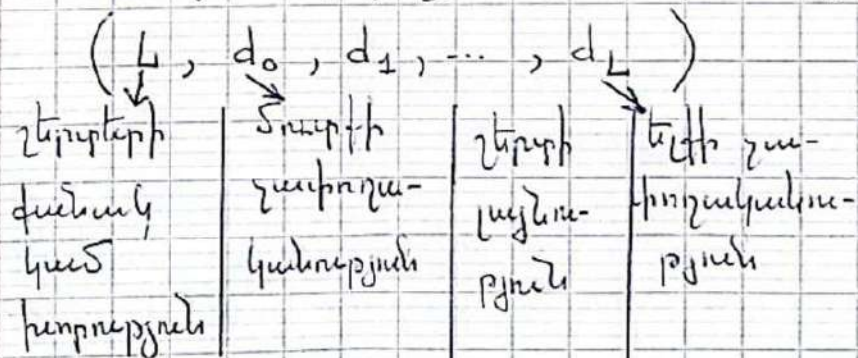 ( L , d₀ , d₁ , ... , d_L )
շերտերի
քանակ
կամ
խորություն
Մուտքի
չափողա-
կանություն
շերտի
լայնու-
թյուն
ելքի չա-
փողականու-
թյուն